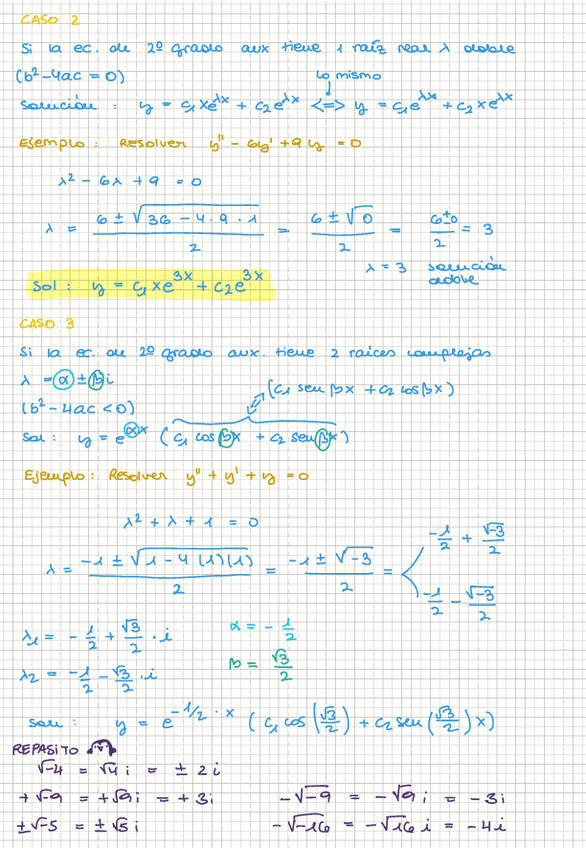 CASO 2
Si la ec. de 2º grado aux tiene 1 raíz real λ doble
(b² - 4ac = 0)
Lo mismo
Solución : y = c₁xe^λx + c₂e^λx <=> y = c₁e^λx + c₂xe^λx
Ejemplo : Resolver y'' - 6y' + 9y = 0
λ² - 6λ + 9 = 0
λ = (6 ± √(36 - 4·9·1))/2 = (6 ± √0)/2 = (6±0)/2 = 3
λ = 3 solución doble
Sol : y = c₁xe^3x + c₂e^3x
CASO 3
Si la ec. de 2º grado aux. tiene 2 raíces complejas
λ = α ± βi
(c₁ sen βx + c₂ cos βx)
(b² - 4ac < 0)
Sol : y = e^αx (c₁ cos βx + c₂ sen βx)
Ejemplo : Resolver y'' + y' + y = 0
λ² + λ + 1 = 0
λ = (-1 ± √(1 - 4(1)(1)))/2 = (-1 ± √-3)/2 =
-1/2 + √-3/2
-1/2 - √-3/2
λ₁ = -1/2 + √3/2 · i α = -1/2
λ₂ = -1/2 - √3/2 · i β = √3/2
Soln : y = e^(-1/2 · x) (c₁ cos(√3/2) + c₂ sen(√3/2)x)
REPASITO
√-4 = √4 i = ± 2i
+√-9 = +√9 i = +3i -√-9 = -√9 i = -3i
±√-5 = ±√5 i -√-16 = -√16 i = -4i